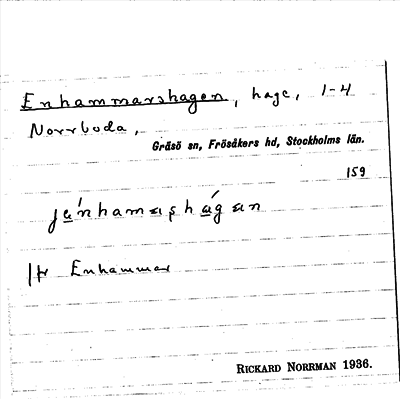 Enhammarshagen, hage, 1-4
Norrboda,
Gräsö sn, Frösåkers hd, Stockholms län.
159
Enhammar
RICKARD NORRMAN 1936.